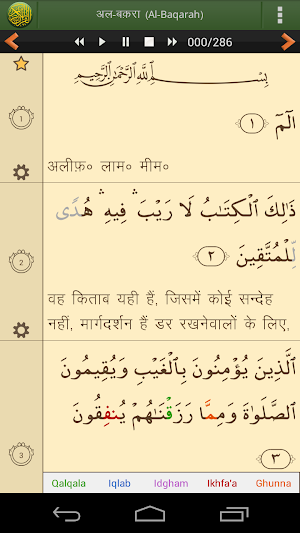 अल-बकरा (Al-Baqarah)
000/286
بِسْمِ ٱللَّهِ ٱلرَّحْمَٰنِ ٱلرَّحِيمِ
1
الٓمٓ ﴿١﴾
अलीफ़॰ लाम॰ मीम॰
2
ذَٰلِكَ ٱلْكِتَٰبُ لَا رَيْبَ ۛ فِيهِ ۛ هُدًى
لِّلْمُتَّقِينَ ﴿٢﴾
वह किताब यही हैं, जिसमें कोई सन्देह
नहीं, मार्गदर्शन हैं डर रखनेवालों के लिए,
3
ٱلَّذِينَ يُؤْمِنُونَ بِٱلْغَيْبِ وَيُقِيمُونَ
ٱلصَّلَوٰةَ وَمِمَّا رَزَقْنَٰهُمْ يُنفِقُونَ
﴿٣﴾
Qalqala Iqlab Idgham Ikhfa'a Ghunna